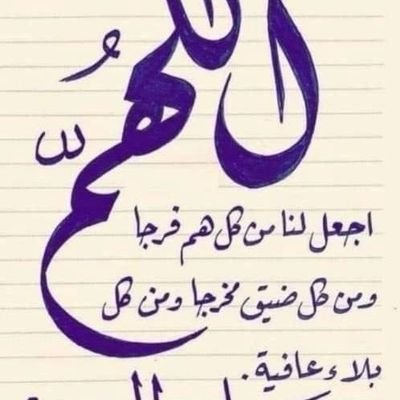 اللهمّ
اجعل لنا من كل هم فرجا
ومن كل ضيق مخرجا ومن كل
بلاء عافية.